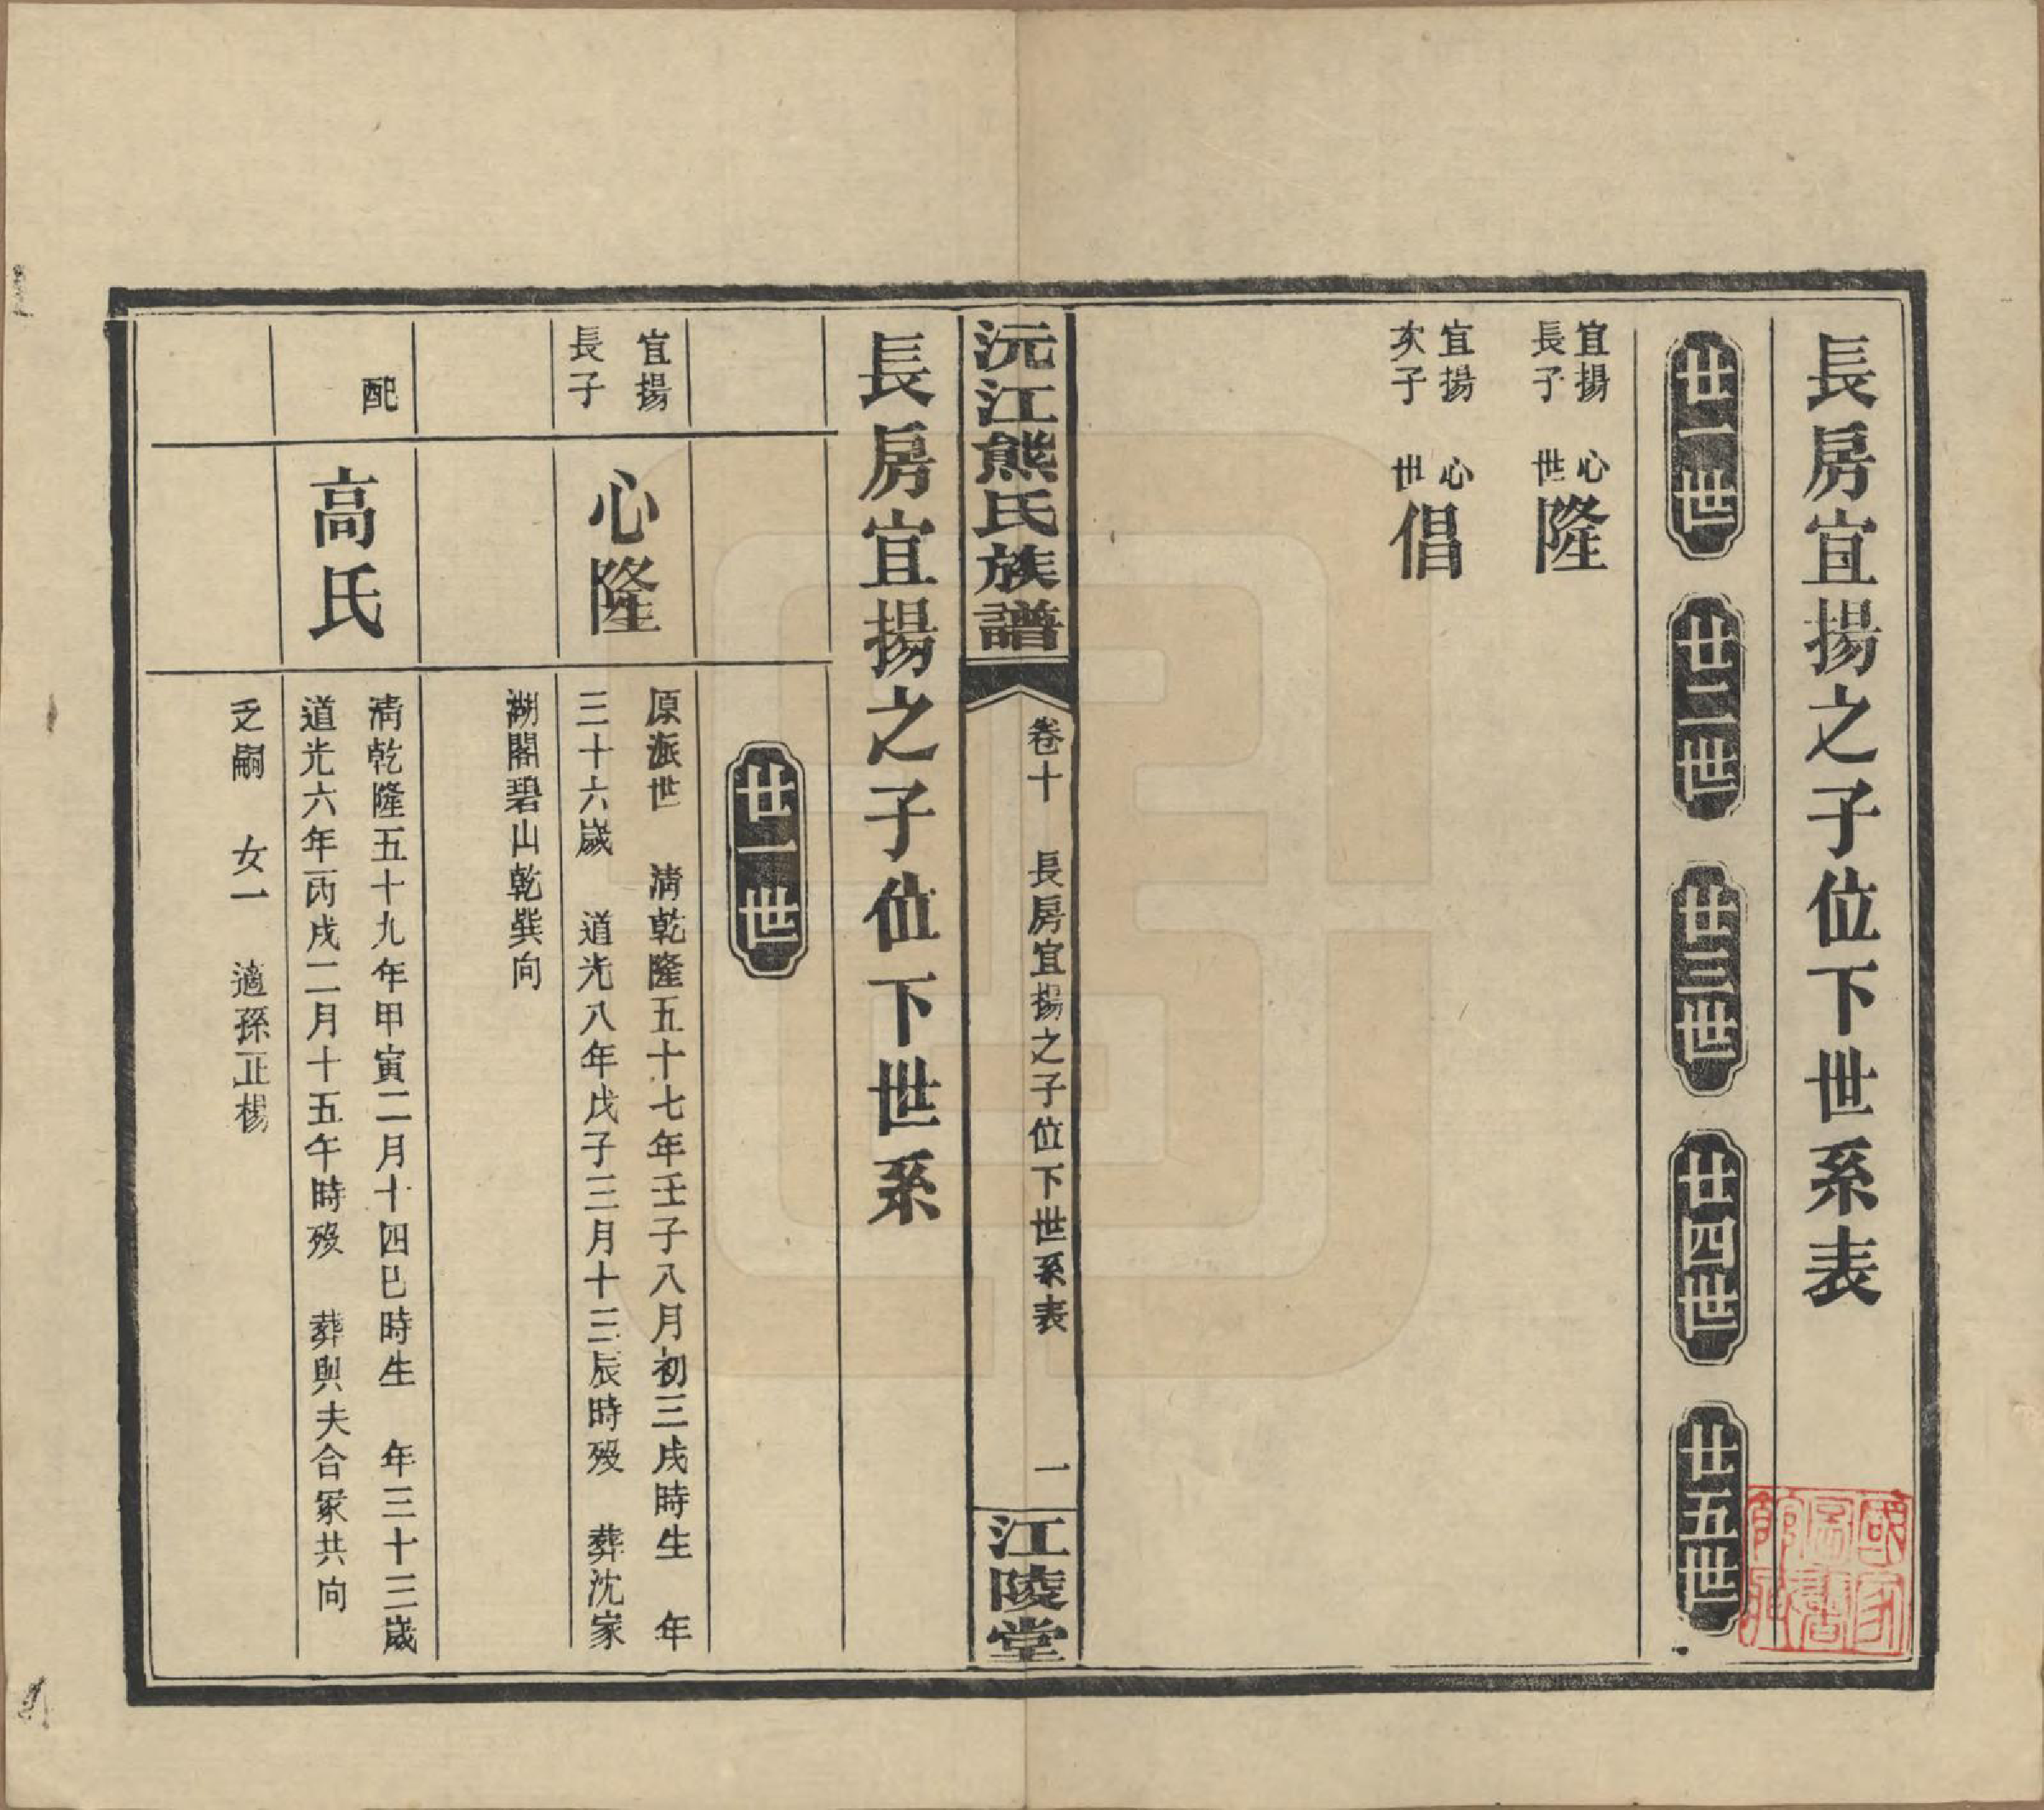 長房宜揚之子位下世系表
廿一世
廿二世
廿三世
廿四世
廿五世
宜揚
長子
心
世
隆
宜揚
次子
心
世
倡
沅江熊氏族譜
卷十
長房宜揚之子位下世系表
一
江陵堂
長房宜揚之子位下世系
廿一世
宜揚
長子
心隆
原派世 清乾隆五十七年壬子八月初三戌時生 年
三十六歲 道光八年戊子三月十三辰時歿 葬沈家
湖閣碧山乾巽向
配
高氏
清乾隆五十九年甲寅二月十四巳時生 年三十三歲
道光六年丙戌二月十五午時歿 葬與夫合冢共向
乏嗣 女一 適孫正楊
國家
圖書
館藏